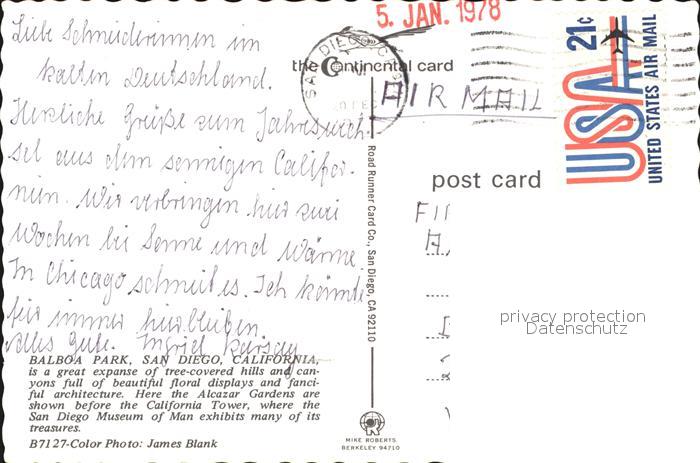 5. JAN. 1978
Liebe Schneiderinnen im
kalten Deutschland.
Herzliche Grüße zum Jahreswech-
sel aus dem sonnigen Califor-
nien. Wir verbringen hier zwei
Wochen bei Sonne und Wärme.
In Chicago schneit es. Ich könnte
für immer hierbleiben.
Alles Gute. Ingrid
BALBOA PARK, SAN DIEGO, CALIFORNIA,
is a great expanse of tree-covered hills and can-
yons full of beautiful floral displays and fanci-
ful architecture. Here the Alcazar Gardens are
shown before the California Tower, where the
San Diego Museum of Man exhibits many of its
treasures.
B7127-Color Photo: James Blank
the Continental card
SAN DIEGO
AIR MAIL
post card
Road Runner Card Co., San Diego, CA 92110
MIKE ROBERTS
BERKELEY 94710
21c
USA
UNITED STATES AIR MAIL
privacy protection
Datenschutz